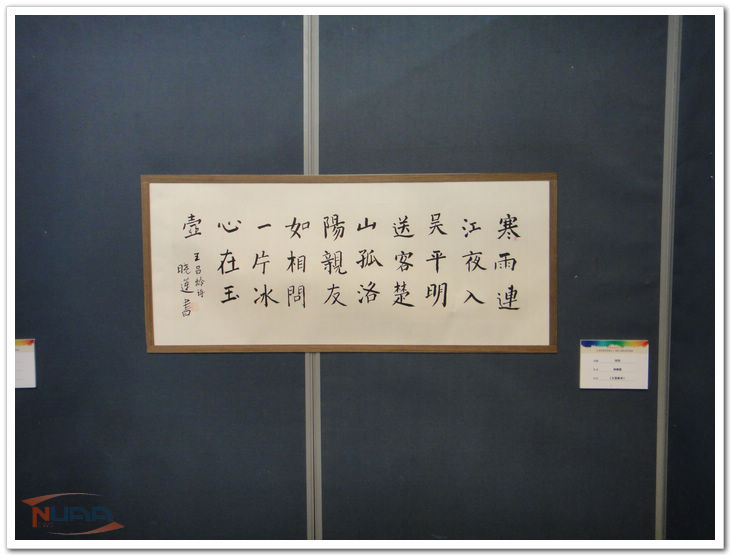 寒雨連
江夜入
吴平明
送客楚
山孤洛
陽親友
如相問
一片冰
心在玉
壺
王昌龄诗
晓莲書
NUAA